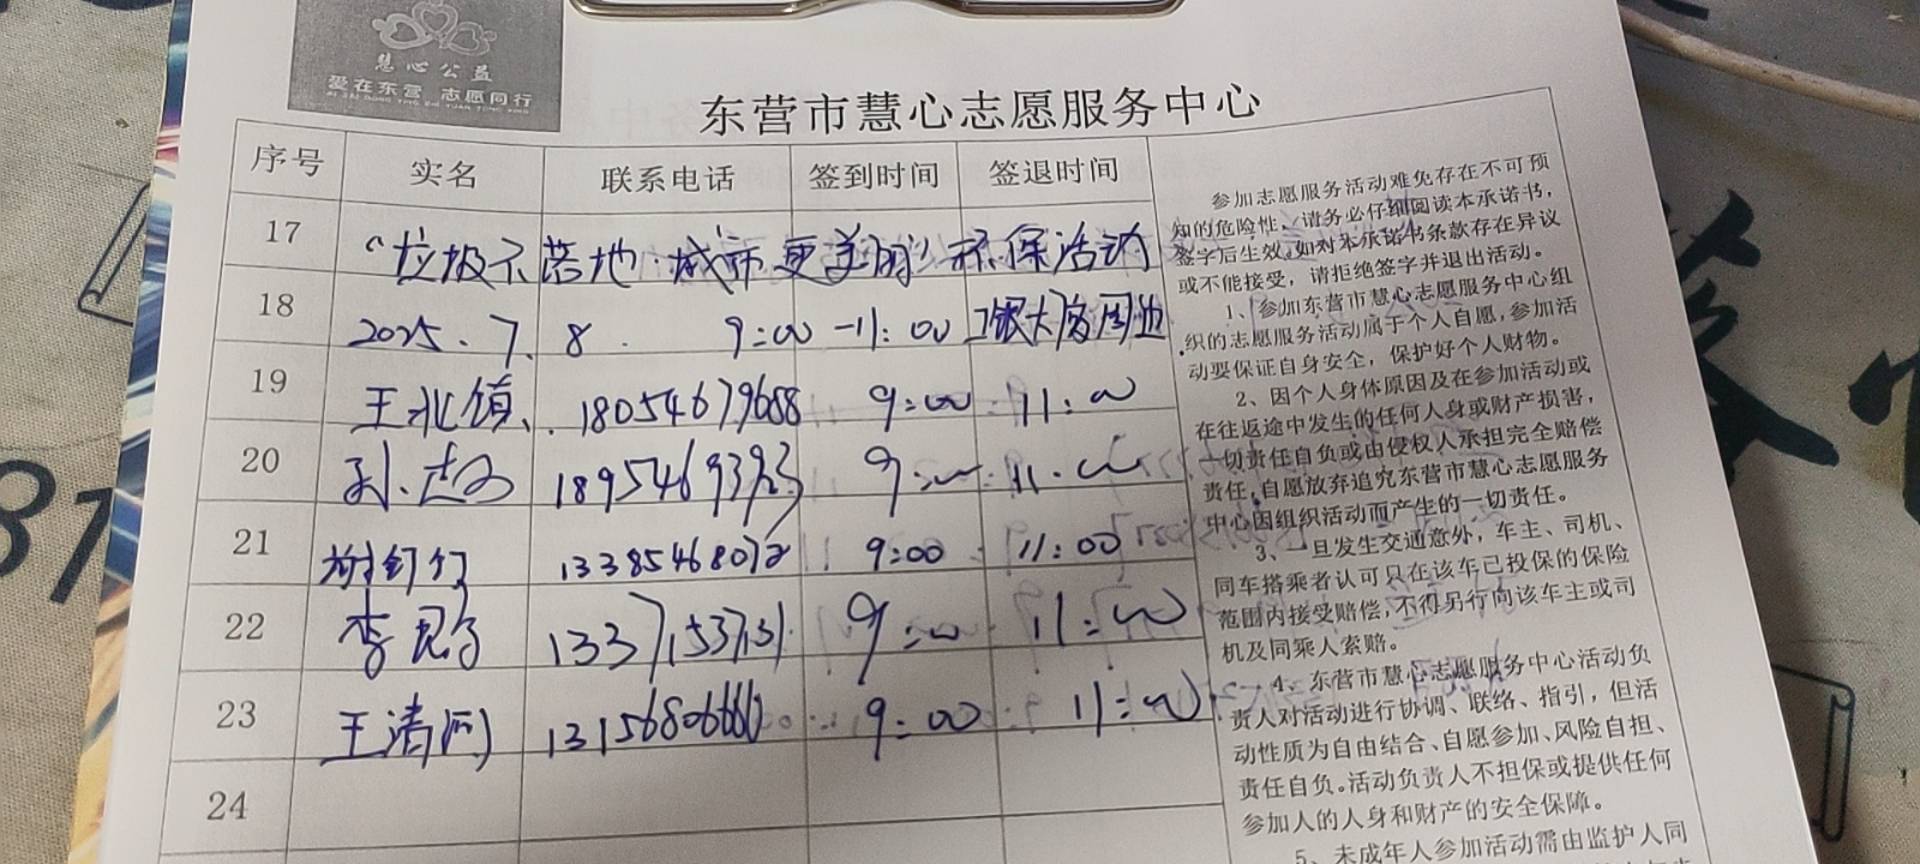 慧心公益
爱在东营 志愿同行
AI ZAI DONG YING ZHI YUAN TONG XING
东营市慧心志愿服务中心
序号 实名 联系电话 签到时间 签退时间
17 “垃圾不落地·城市更美丽”环保活动
18 2025.7.8. 9:00-11:00 工银大厦周边
19 王北镇 18054679688 9:00 11:00
20 孙 9:00 11:00
21 谢钉钉 9:00 11:00
22 李 9:00 11:00
23 王清 9:00 11:00
24
参加志愿服务活动难免存在不可预
知的危险性、请务必仔细阅读本承诺书,
签字后生效,如对本承诺书条款存在异议
或不能接受，请拒绝签字并退出活动。
1、参加东营市慧心志愿服务中心组
织的志愿服务活动属于个人自愿,参加活
动要保证自身安全，保护好个人财物。
2、因个人身体原因及在参加活动或
在往返途中发生的任何人身或财产损害,
一切责任自负或由侵权人承担完全赔偿
责任,自愿放弃追究东营市慧心志愿服务
中心因组织活动而产生的一切责任。
3、一旦发生交通意外，车主、司机、
同车搭乘者认可只在该车已投保的保险
范围内接受赔偿,不得另行向该车主或司
机及同乘人索赔。
4、东营市慧心志愿服务中心活动负
责人对活动进行协调、联络、指引，但活
动性质为自由结合、自愿参加、风险自担、
责任自负。活动负责人不担保或提供任何
参加人的人身和财产的安全保障。
5、未成年人参加活动需由监护人同